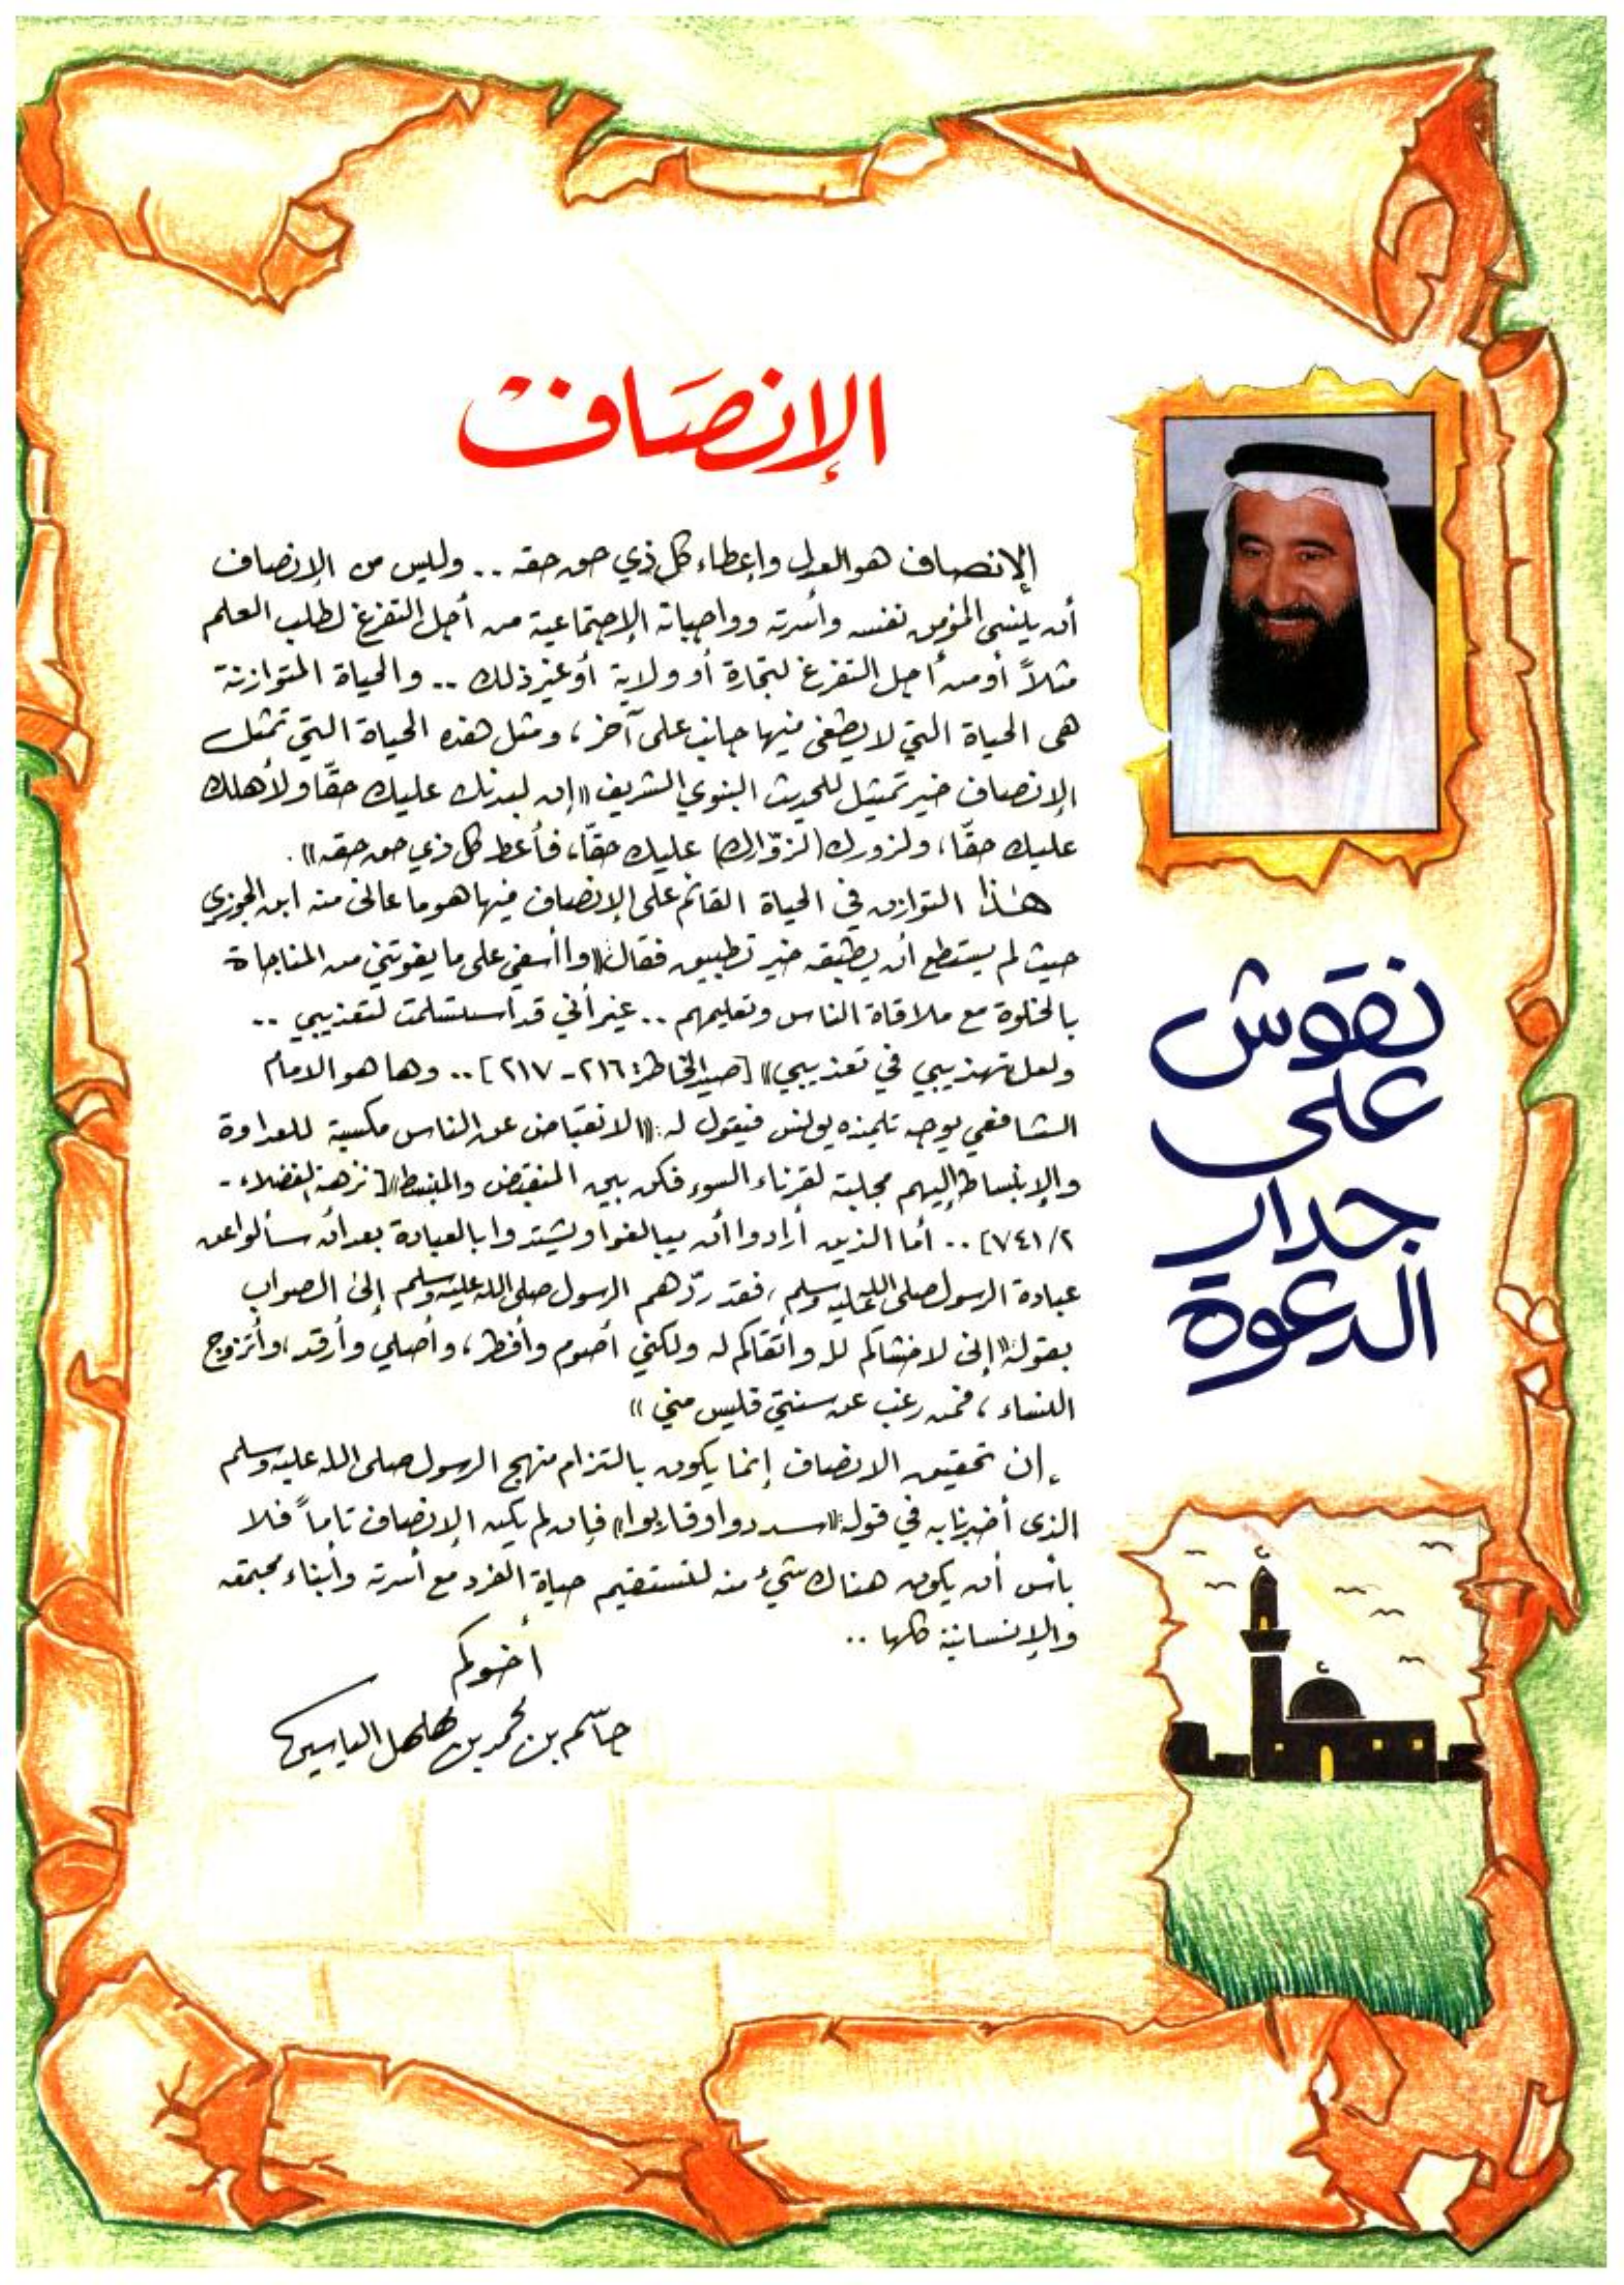 الإنصاف
الإنصاف هو العدل وإعطاء كل ذي حق حقه .. وليس من الإنصاف
أن ينسى المؤمن نفسه وأسرته وواجباته الاجتماعية من أجل التفرغ لطلب العلم
مثلاً أو من أجل التفرغ لتجارة أو ولاية أو غير ذلك .. والحياة المتوازنة
هى الحياة التي لا يطغى فيها جانب على آخر، ومثل هذه الحياة التي تمثل
الإنصاف خير تمثيل للحديث النبوي الشريف «إن لبدنك عليك حقًا ولأهلك
عليك حقًا، ولزورك (لزوّارك) عليك حقًا، فأعط كل ذي حق حقه».
هذا التوازن في الحياة القائم على الإنصاف فيها هو ما عانى منه ابن الجوزي
حيث لم يستطع أن يطبقه خير تطبيق فقال: «وا أسفي على ما يفوتني من المناجاة
بالخلوة مع ملاقاة الناس وتعليمهم .. غير أني قد استسلمت لتعذيبي ..
ولعل تهذيبي في تعذيبي» [صيد الخاطر: ٢١٦ - ٢١٧] .. وها هو الامام
الشافعي يوجه تلميذه يونس فيقول له: «الانقباض عن الناس مكسبة للعداوة
والإنبساط إليهم مجلبة لقرناء السوء فكن بين المنقبض والمنبسط» [نزهة الفضلاء -
٢/٧٤١] .. أما الذين أرادوا أن يبالغوا ويشتدوا بالعبادة بعد أن سألوا عن
عبادة الرسول صلى الله عليه وسلم، فقد ردّهم الرسول صلى الله عليه وسلم إلى الصواب
بقوله: «إنى لاخشاكم لله واتقاكم له ولكني أصوم وأفطر، وأصلي وأرقد، وأتزوج
النساء، فمن رغب عن سنتي فليس مني»
إن تحقيق الانصاف إنما يكون بالتزام منهج الرسول صلى الله عليه وسلم
الذى أخبرنا به في قوله: «سددوا وقاربوا» فإن لم يكن الإنصاف تاماً فلا
بأس أن يكون هناك شيء منه لتستقيم حياة الفرد مع أسرته وأبناء مجتمعه
والإنسانية كلها ..
أخوكم
جاسم بن محمد بن مهلهل الياسين
نقوش
على
جدار
الدعوة